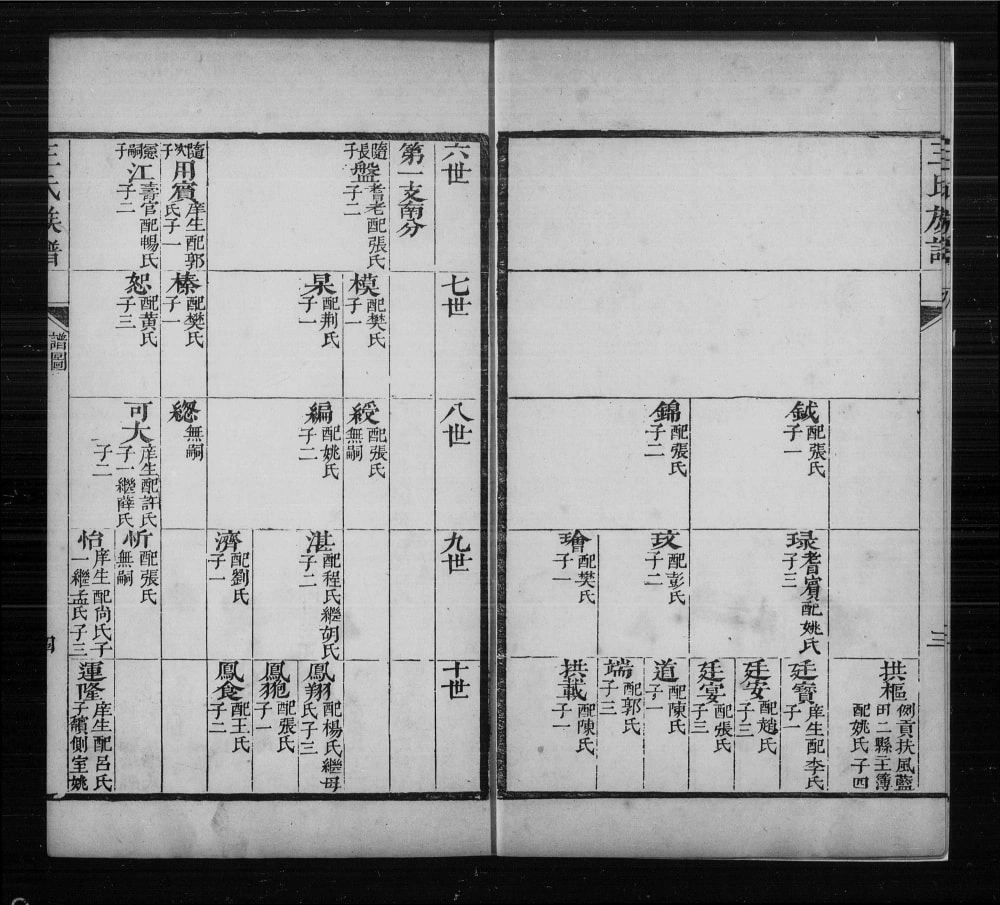 王氏族譜
三
鉞
配張氏
子一
錦
配張氏
子二
琭
耆賓配姚氏
子三
玟
配彭氏
子二
璯
配樊氏
子一
拱樞
例貢扶風藍
田二縣主簿
配姚氏子四
廷寶
庠生配李氏
子一
廷安
配趙氏
子三
廷宴
配張氏
子三
道
配陳氏
子一
端
配郭氏
子三
拱載
配陳氏
子一
六世
第一支南分
隨長子
盤
耆老配張氏
子二
隨次子
用賓
庠生配郭
氏子一
嗣子
江
壽官配暢氏
子二
七世
模
配樊氏
子一
杲
配荆氏
子一
榛
配樊氏
子一
恕
配黃氏
子三
八世
綬
配張氏
無嗣
編
配姚氏
子二
緫
無嗣
可大
庠生配許氏
子一繼薛氏
子二
九世
湛
配程氏繼胡氏
子二
濟
配劉氏
子一
忻
配張氏
無嗣
怡
庠生配尚氏子
一繼孟氏子三
十世
鳳翔
配楊氏繼母
氏子三
鳳
配張氏
子一
鳳食
配王氏
子二
運隆
庠生配呂氏
子續側室姚
王氏族譜
譜圖
四